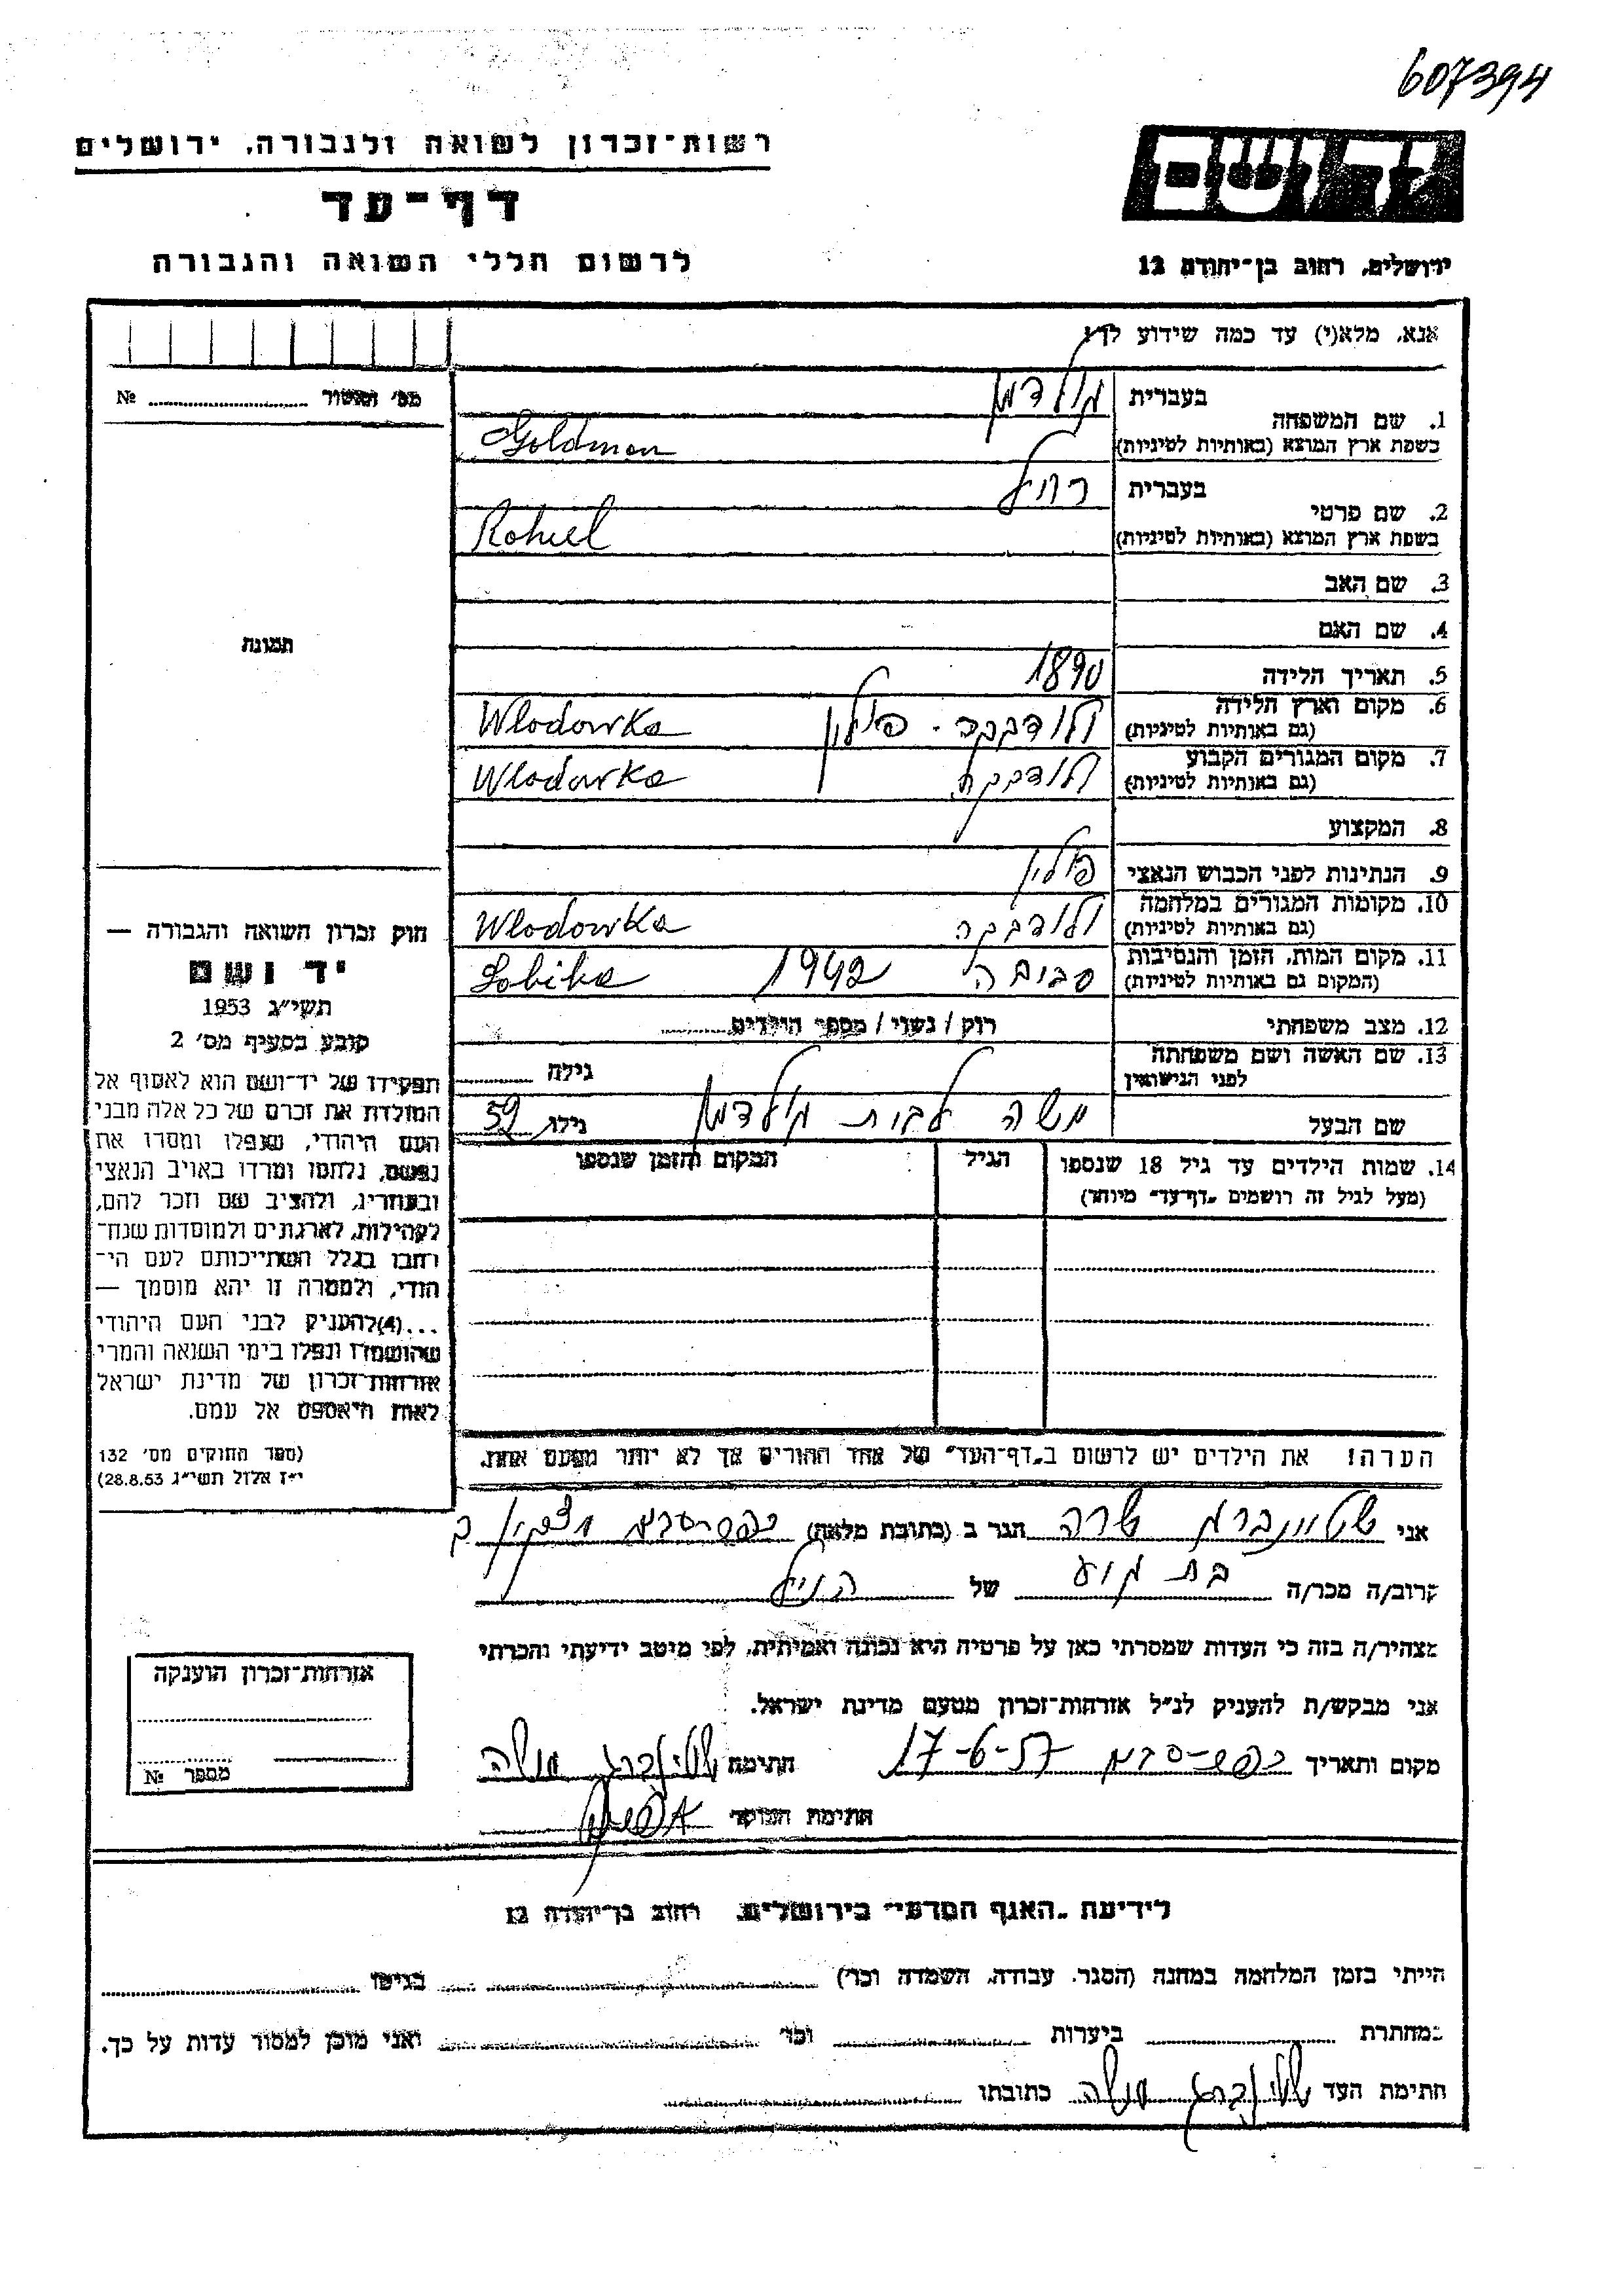 607394
רשות־זכרון לשואה ולגבורה, ירושלים
יד ושם
דף־עד
לרשום חללי השואה והגבורה
ירושלים, רחוב בן־יהודה 12
אנא, מלא(י) עד כמה שידוע לך!
מס׳ האשור № 
1. שם המשפחה בעברית גולדמן
בשפת ארץ המוצא (באותיות לטיניות) Goldman
2. שם פרטי בעברית רחל
בשפת ארץ המוצא (באותיות לטיניות) Rohul
3. שם האב
4. שם האם
תמונה
5. תאריך הלידה 1890
6. מקום וארץ הלידה (גם באותיות לטיניות) ולודבקה - פולין Wlodowka
7. מקום המגורים הקבוע (גם באותיות לטיניות) ולודבקה Wlodowka
8. המקצוע
9. הנתינות לפני הכבוש הנאצי פולין
10. מקומות המגורים במלחמה (גם באותיות לטיניות) ולודבקה Wlodowka
11. מקום המות, הזמן והנסיבות (המקום גם באותיות לטיניות) 1942
12. מצב משפחתי רוק / נשוי / מספר הילדים
13. שם האשה ושם משפחתה לפני הנישואין גילה
שם הבעל משה גולדמן גילו 59
14. שמות הילדים עד גיל 18 שנספו הגיל המקום והזמן שנספו
(מעל לגיל זה רושמים „דף־עד״ מיוחד)
חוק זכרון השואה והגבורה —
יד ושם
תשי״ג 1953
קובע בסעיף מס׳ 2
תפקידו של יד־ושם הוא לאסוף אל
המולדת את זכרם של כל אלה מבני
העם היהודי, שנפלו ומסרו את
נפשם, נלחמו ומרדו באויב הנאצי
ובעוזריו, ולהציב שם וזכר להם,
לקהילות, לארגונים ולמוסדות שנח־
רבו בגלל השתייכותם לעם הי־
הודי, ולמטרה זו יהא מוסמך —
...(4)להעניק לבני העם היהודי
שהושמדו ונפלו בימי השואה והמרי
אזרחות־זכרון של מדינת ישראל
לאות היאספם אל עמם.
(ספר החוקים מס׳ 132
י״ז אלול תשי״ג 28.8.53)
הערה! את הילדים יש לרשום ב„דף־העד״ של אחד ההורים אך לא יותר מפעם אחת.
אני שטיינברג שרה הגר ב (כתובת מלאה) כפר־סבא
קרוב/ה מכר/ה בת גיס של הנ״ל
מצהיר/ה בזה כי העדות שמסרתי כאן על פרטיה היא נכונה ואמיתית, לפי מיטב ידיעתי והכרתי
אני מבקש/ת להעניק לנ״ל אזרחות־זכרון מטעם מדינת ישראל.
מקום ותאריך כפר־סבא 17-6-57 חתימה שטיינברג שרה
חתימת הפוקד
אזרחות־זכרון הוענקה
מספר №
לידיעת „האגף המדעי״ בירושלים, רחוב בן־יהודה 12
הייתי בזמן המלחמה במחנה (הסגר, עבודה, השמדה וכו׳) בגיטו
במחתרת ביערות וכו׳ ואני מוכן למסור עדות על כך.
חתימת העד שטיינברג שרה כתובתו